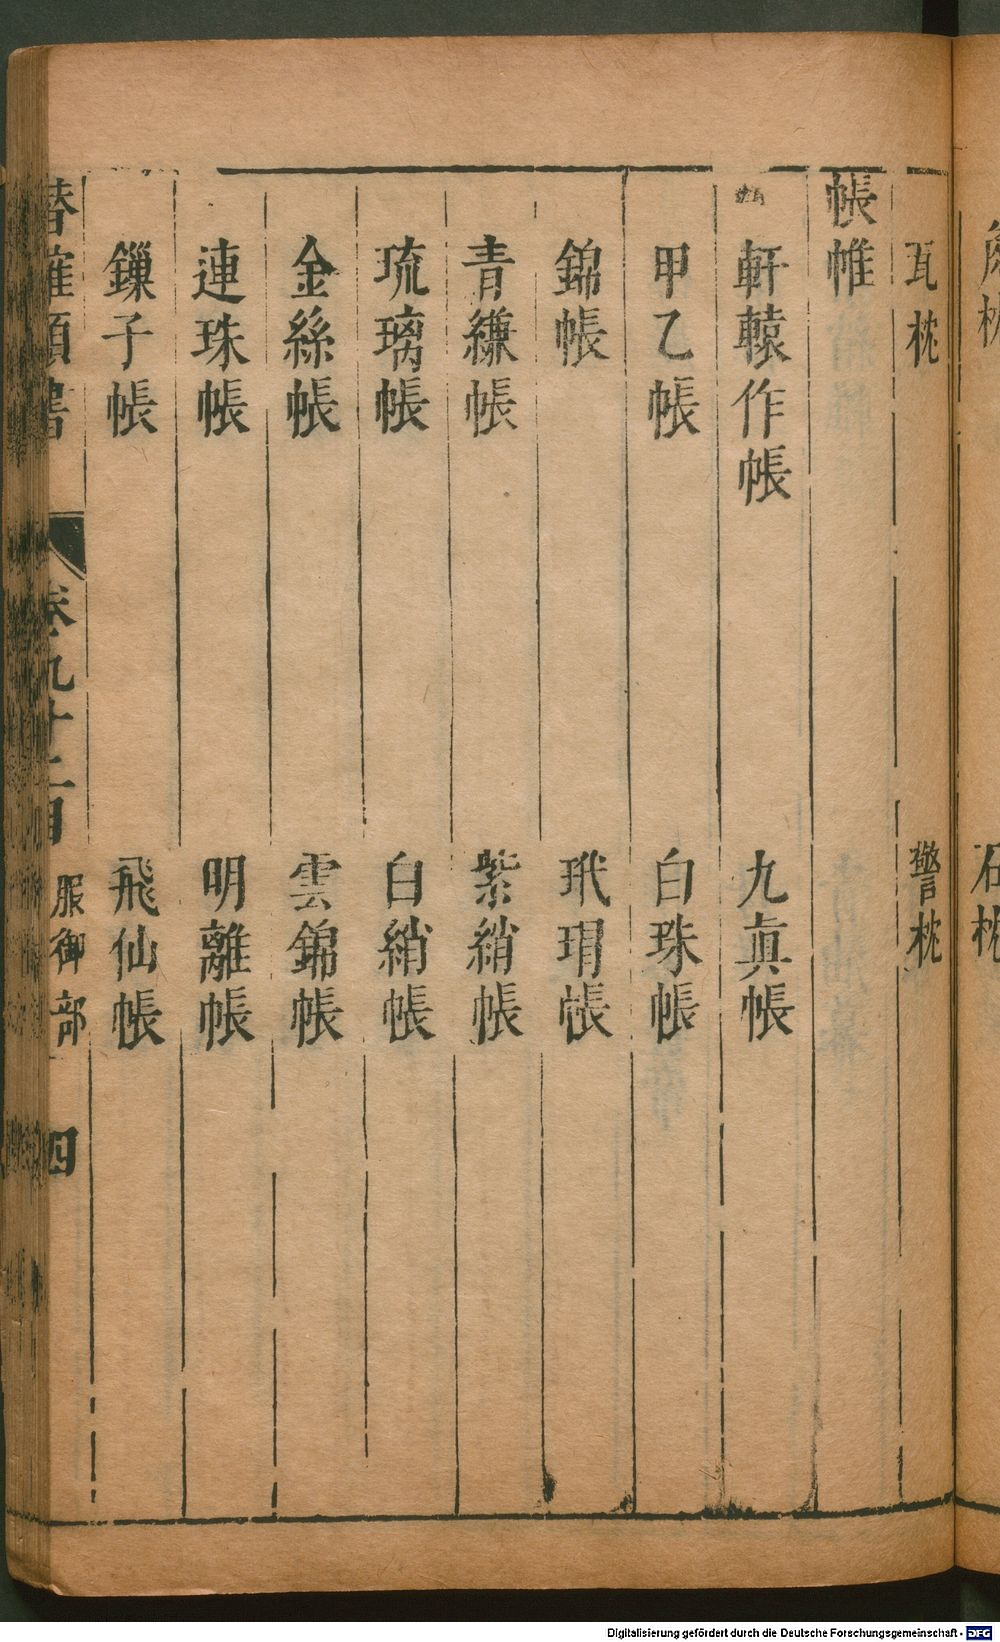 瓦枕 警枕
帳帷
軒轅作帳 九真帳
甲乙帳 白珠帳
錦帳 玳瑁帳
青縑帳 紫綃帳
琉璃帳 白綃帳
金絲帳 雲錦帳
連珠帳 明離帳
鏁子帳 飛仙帳
類書 卷九十二目 服御部 四
石枕
Digitalisierung gefördert durch die Deutsche Forschungsgemeinschaft - DFG